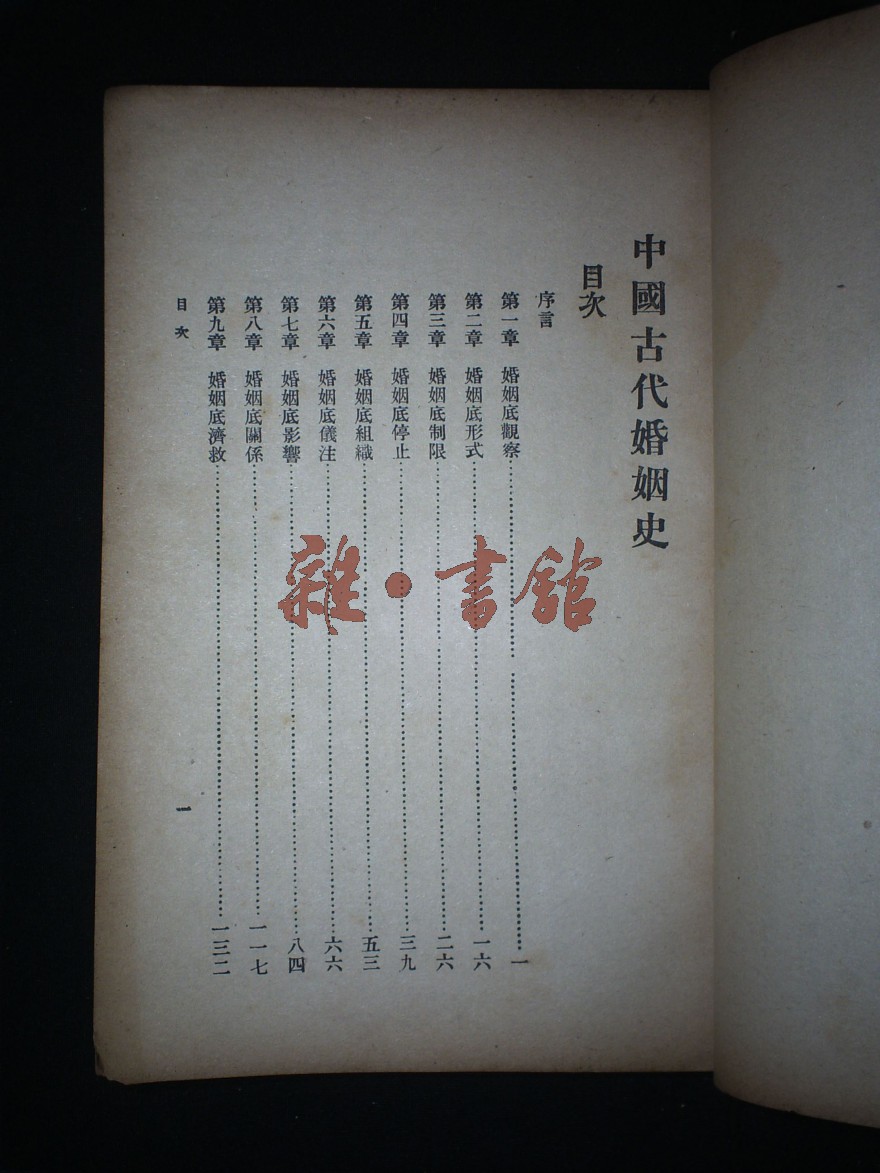 中國古代婚姻史
目次
序言
第一章 婚姻底觀察……一
第二章 婚姻底形式……一六
第三章 婚姻底制限……二六
第四章 婚姻底停止……三九
第五章 婚姻底組織……五三
第六章 婚姻底儀注……六六
第七章 婚姻底影響……八四
第八章 婚姻底關係……一一七
第九章 婚姻底濟救……一三二
目次 一
雜·書館